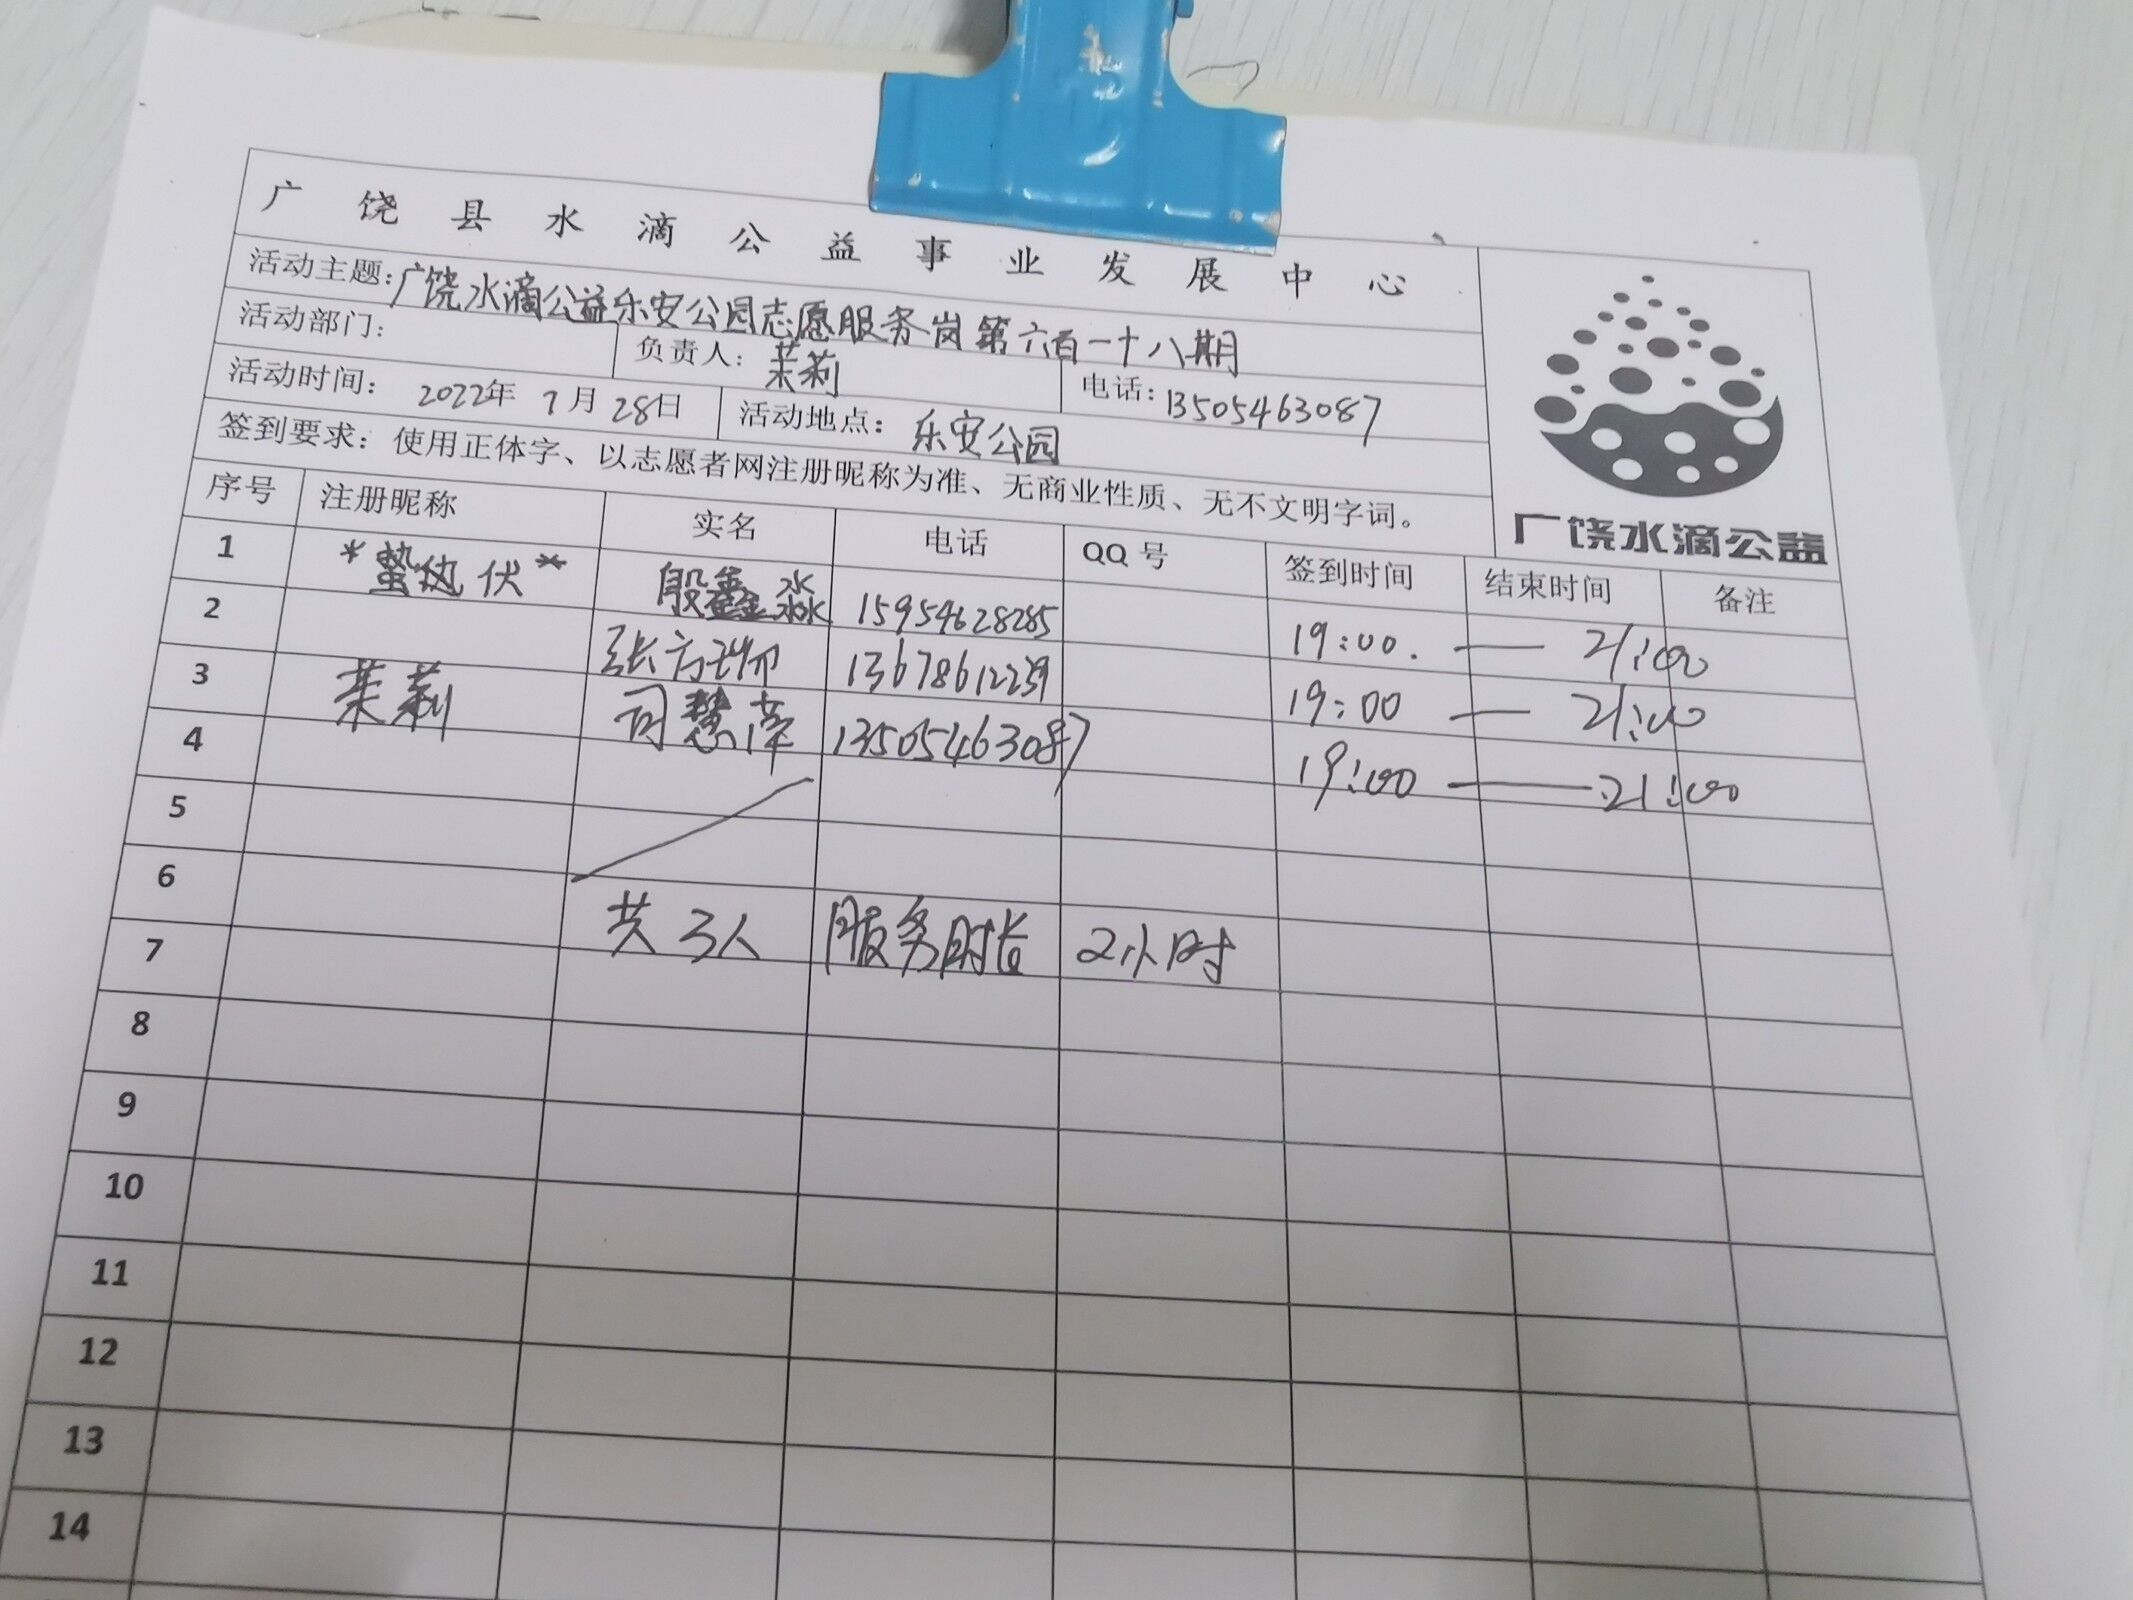 广饶县水滴公益事业发展中心
活动主题:广饶水滴公益乐安公园志愿服务岗第六百一十八期
活动部门: 负责人: 茉莉 电话:13505463087
活动时间: 2022年 7月 28日 活动地点: 乐安公园
签到要求: 使用正体字、以志愿者网注册昵称为准、无商业性质、无不文明字词。
广饶水滴公益
序号 注册昵称 实名 电话 QQ号 签到时间 结束时间 备注
1 *蛰伏* 殷鑫淼 15954628285 19:00. — 21:00
2 张方 13678612259 19:00 — 21:00
3 茉莉 司慧萍 13505463087 19:00 — 21:00
4
5
6 共3人 服务时长 2小时
7
8
9
10
11
12
13
14